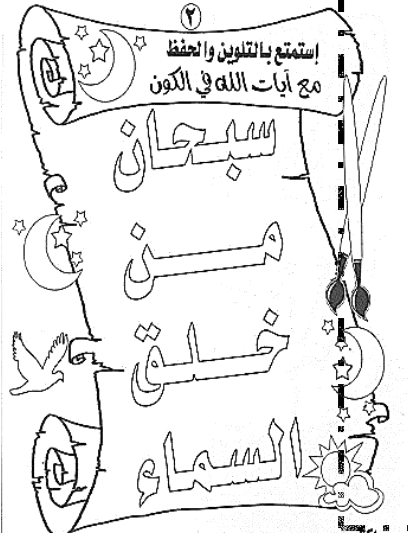 ٢
إستمتع بالتلوين والحفظ
مع آيات الله في الكون
سبحان
من
خلق
السماء